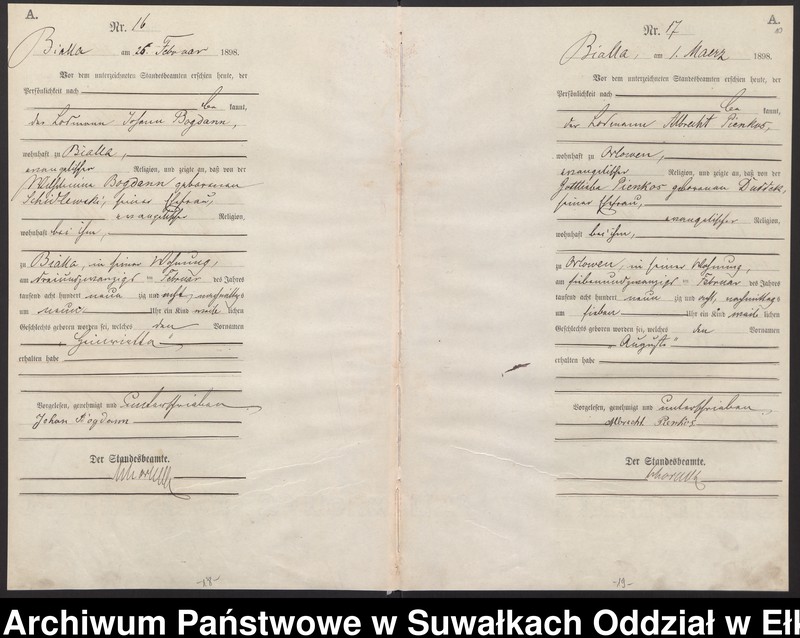 A.
Nr. 16
Bialla am 25. Februar 1898.
Vor dem unterzeichneten Standesbeamten erschien heute, der
Persönlichkeit nach
be kannt,
der Losmann Johann Bogdann,
wohnhaft zu Bialla,
evangelischer Religion, und zeigte an, daß von der
Wilhelmine Bogdann geborenen
seiner Ehefrau,
evangelischer Religion,
wohnhaft bei ihm,
zu Bialla, in seiner Wohnung,
am dreiundzwanzigst en Februar des Jahres
tausend acht hundert neun zig und acht, nachmittags
um neun Uhr ein Kind weib lichen
Geschlechts geboren worden sei, welches den Vornamen
„Henrietta“
erhalten habe
Vorgelesen, genehmigt und unterschrieben
Johan Bogdann
Der Standesbeamte.
-18-
A.
Nr. 17
Bialla, am 1. Maerz 1898.
Vor dem unterzeichneten Standesbeamten erschien heute, der
Persönlichkeit nach
be kannt,
der Losmann Albrecht Pienkos,
wohnhaft zu Orlowen,
evangelischer Religion, und zeigte an, daß von der
Gottliebe Pienkos geborenen
seiner Ehefrau,
evangelischer Religion,
wohnhaft bei ihm,
zu Orlowen, in seiner Wohnung,
am siebenundzwanzigst en Februar des Jahres
tausend acht hundert neun zig und acht, nachmittags
um sieben Uhr ein Kind weib lichen
Geschlechts geboren worden sei, welches den Vornamen
„Auguste“
erhalten habe
Vorgelesen, genehmigt und unterschrieben
Albrecht Pienkos
Der Standesbeamte.
-19-
Archiwum Państwowe w Suwałkach Oddział w Ełk